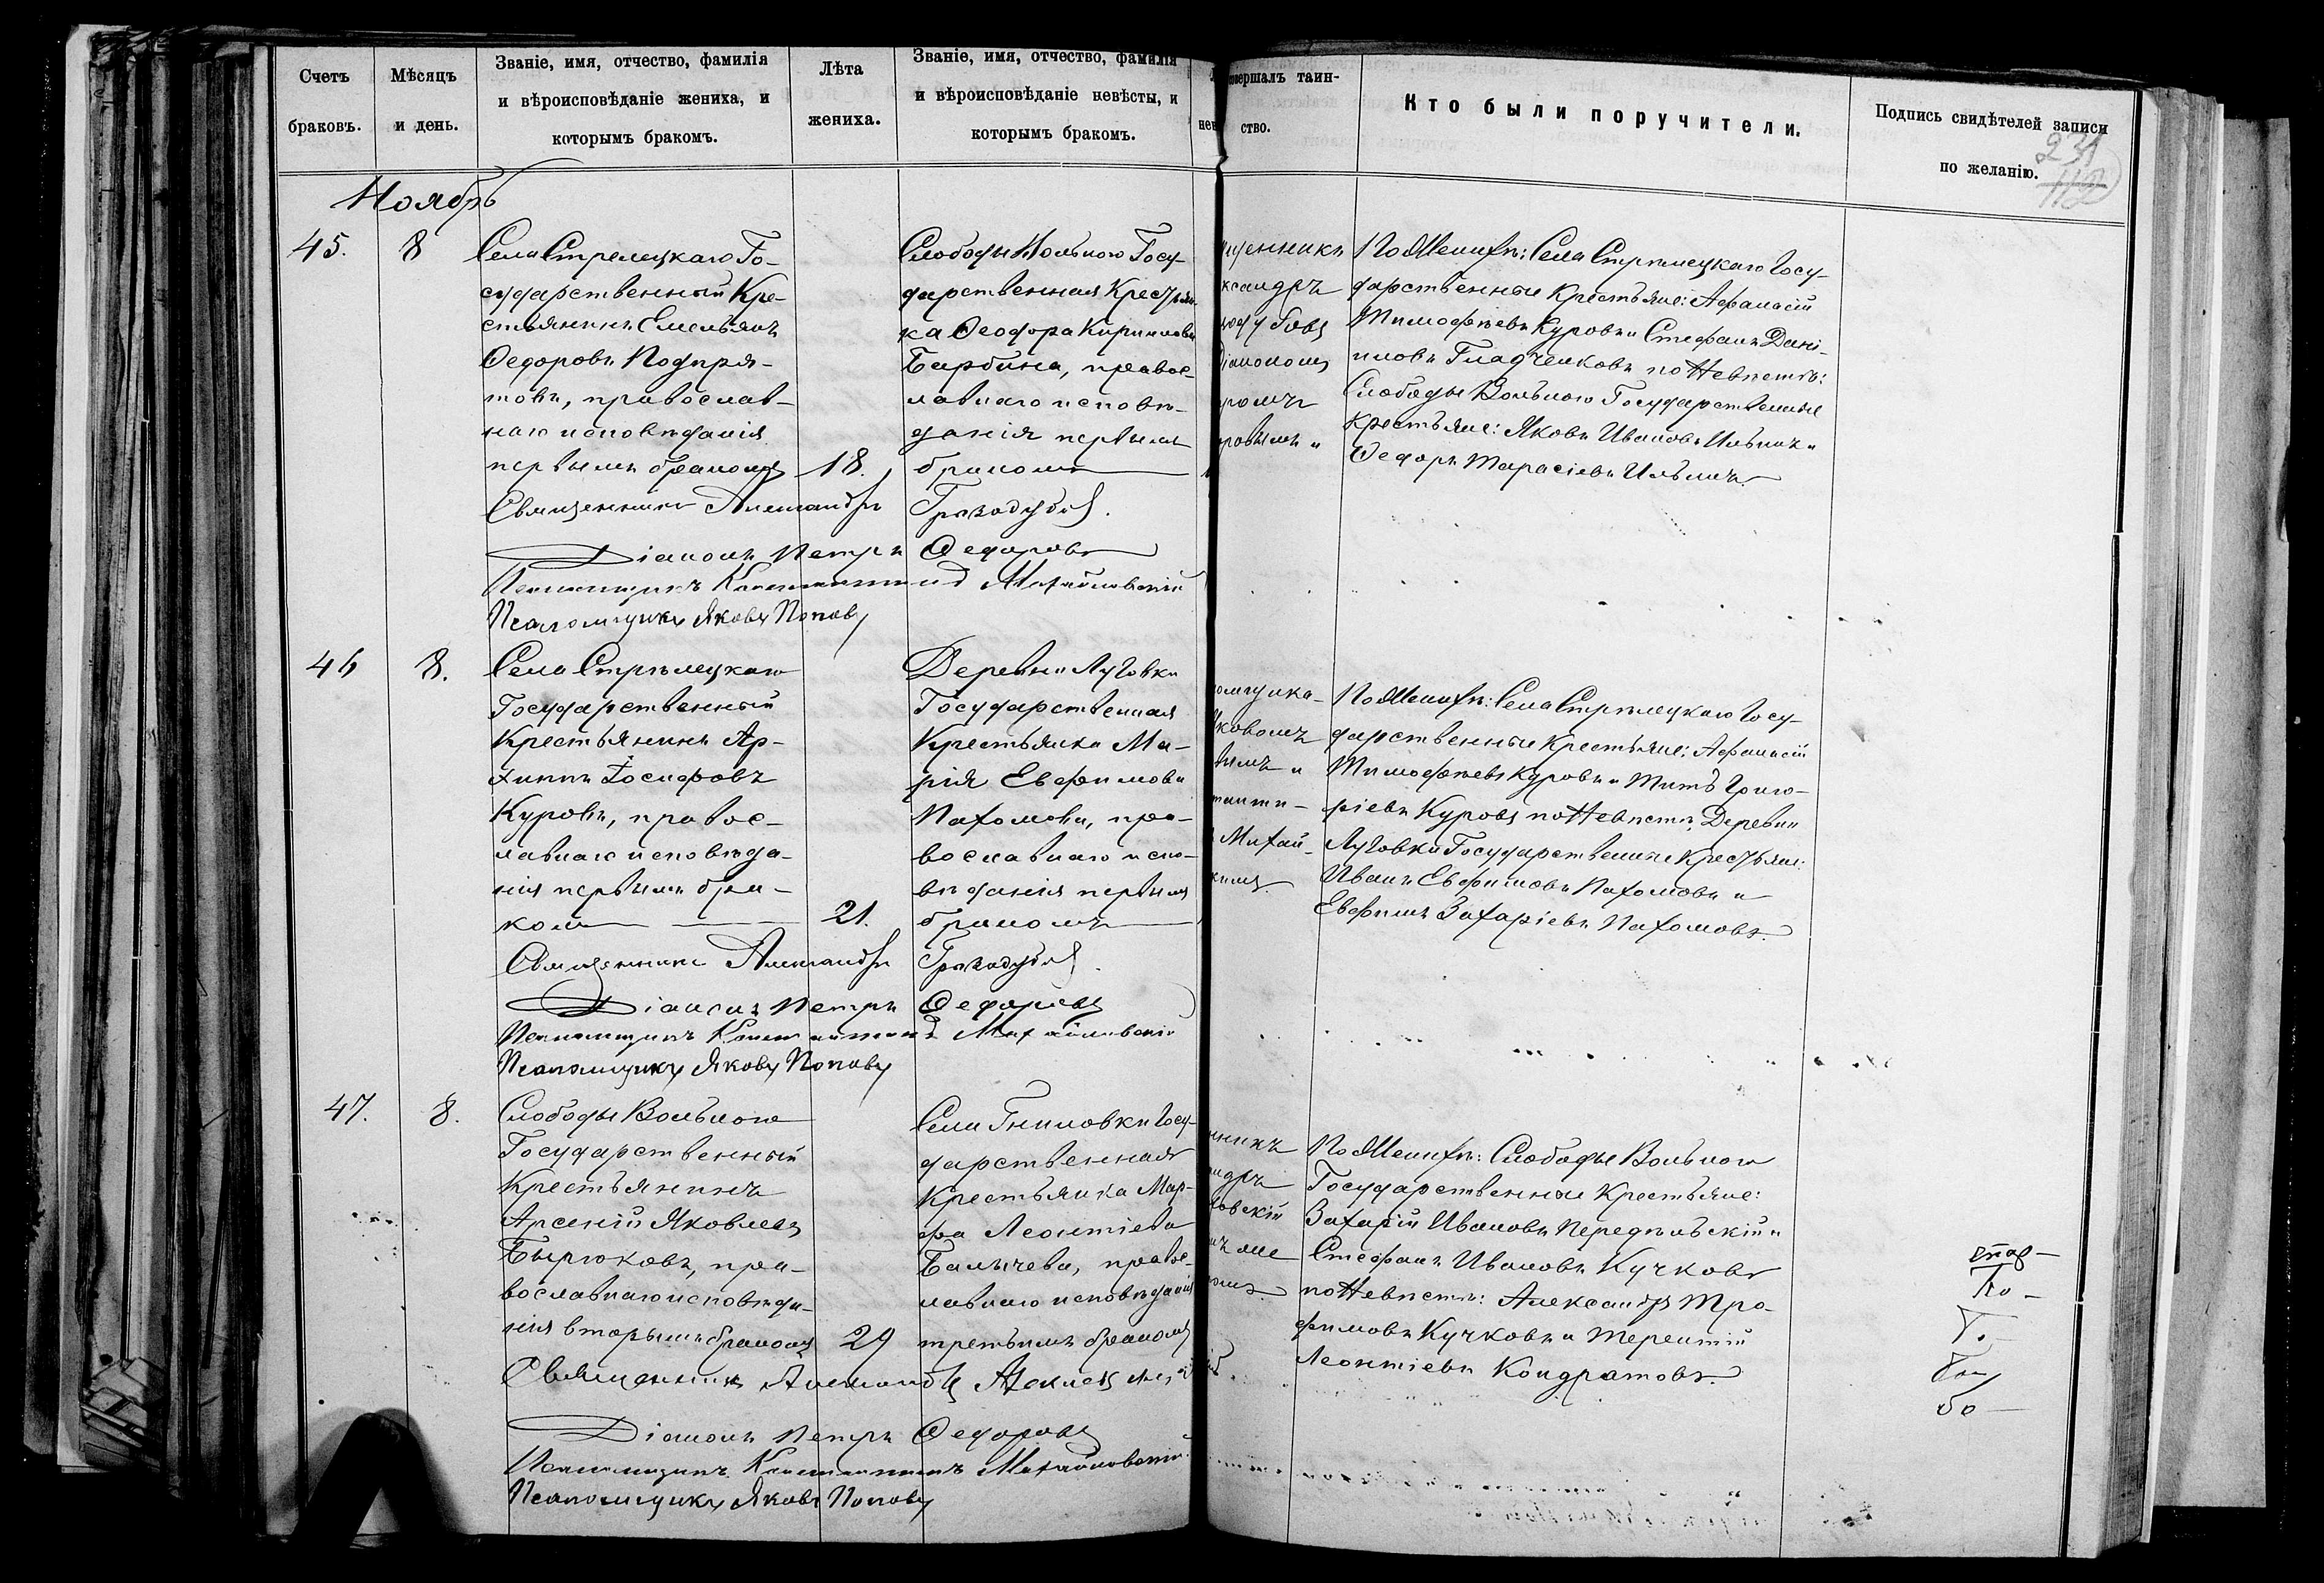 Счетъ
браковъ.
Мѣсяцъ
и день.
Званіе, имя, отчество, фамилія
и вѣроисповѣданіе жениха, и
которымъ бракомъ.
Лѣта
жениха.
Званіе, имя, отчество, фамилія
и вѣроисповѣданіе невѣсты, и
которымъ бракомъ.
нев
овершалъ таин-
ство.
Кто были поручители.
Подпись свидѣтелей записи
по желанію.
231
Ноябрь
45.
8
Села Стрелецкаго Го-
сударственный Кре-
стьянинъ Емельянъ
Ѳедоровъ Подпря-
товъ, православ-
наго исповѣданія
первымъ бракомъ
18.
Слободы Вольного Госу-
дарственная Крестьян-
ка Ѳеодора Кириллова
Барбина, правос-
лавнаго исповѣ-
данія первымъ
бракомъ
щенникъ
ксандръ
зодубовъ
діакономъ
тромъ
оровымъ и
По Женихѣ: Села Стрѣлецкаго Госу-
дарственные Крестьяне: Афанасій
Тимофѣевъ Куровъ и Стефанъ Дані-
иловъ Гладченковъ по Невѣстѣ:
Слободы Вольного Государственные
Крестьяне: Яковъ Ивановъ Ильинъ и
Ѳедоръ Тарасіевъ Ильинъ.
Священникъ Александръ Грязодубов.
Діаконъ Петръ Ѳедоровъ
Псаломщикъ Константинъ Михайловскій
Псаломщикъ Яковъ Поповъ
46
8.
Села Стрѣлецкаго
Государственный
Крестьянинъ Ар-
хиппъ Іосифовъ
Куровъ, правос-
лавнаго исповѣда-
нія первымъ бра-
комъ
21.
Деревни Луговки
Государственная
Крестьянка Ма-
рія Евфимова
Пахомова, пра-
вославнаго испо-
вѣданія первымъ
бракомъ
ломщика-
Яковомъ
вымъ и
танти-
Михай-
кимъ.
По Женихѣ: Села Стрѣлецкаго Госу-
дарственные Крестьяне: Афанасій
Тимофѣевъ Куровъ и Титъ Григо-
ріевъ Куровъ по Невѣстѣ, Деревни
Луговки Государственные Крестьяне:
Иванъ Евфимовъ Пахомовъ и
Евфимъ Захаріевъ Пахомовъ.
Священникъ Александръ Грязодубов.
Діаконъ Петръ Ѳедоровъ
Псаломщикъ Константинъ Михайловскій
Псаломщикъ Яковъ Поповъ
47.
8.
Слободы Вольного
Государственный
Крестьянинъ
Арсеній Яковлевъ
Бырюковъ, пра-
вославнаго исповѣда-
нія вторымъ бракомъ
29
Села Гниловки Госу-
дарственная
Крестьянка Мар-
фа Леонтіева
Балычева, правос-
лавнаго исповѣданія
третьимъ бракомъ
нникъ
андръ
ловскій
По Женихѣ: Слободы Вольного
Государственные Крестьяне:
Захарій Ивановъ Передѣльскій и
Стефанъ Ивановъ Кучковъ
по Невѣстѣ: Александръ Тро-
фимовъ Кучковъ и Терентій
Леонтіевъ Кондратовъ.
Священникъ Александръ
Діаконъ Петръ Ѳедоровъ
Псаломщикъ Константинъ Михайловскій
Псаломщикъ Яковъ Поповъ